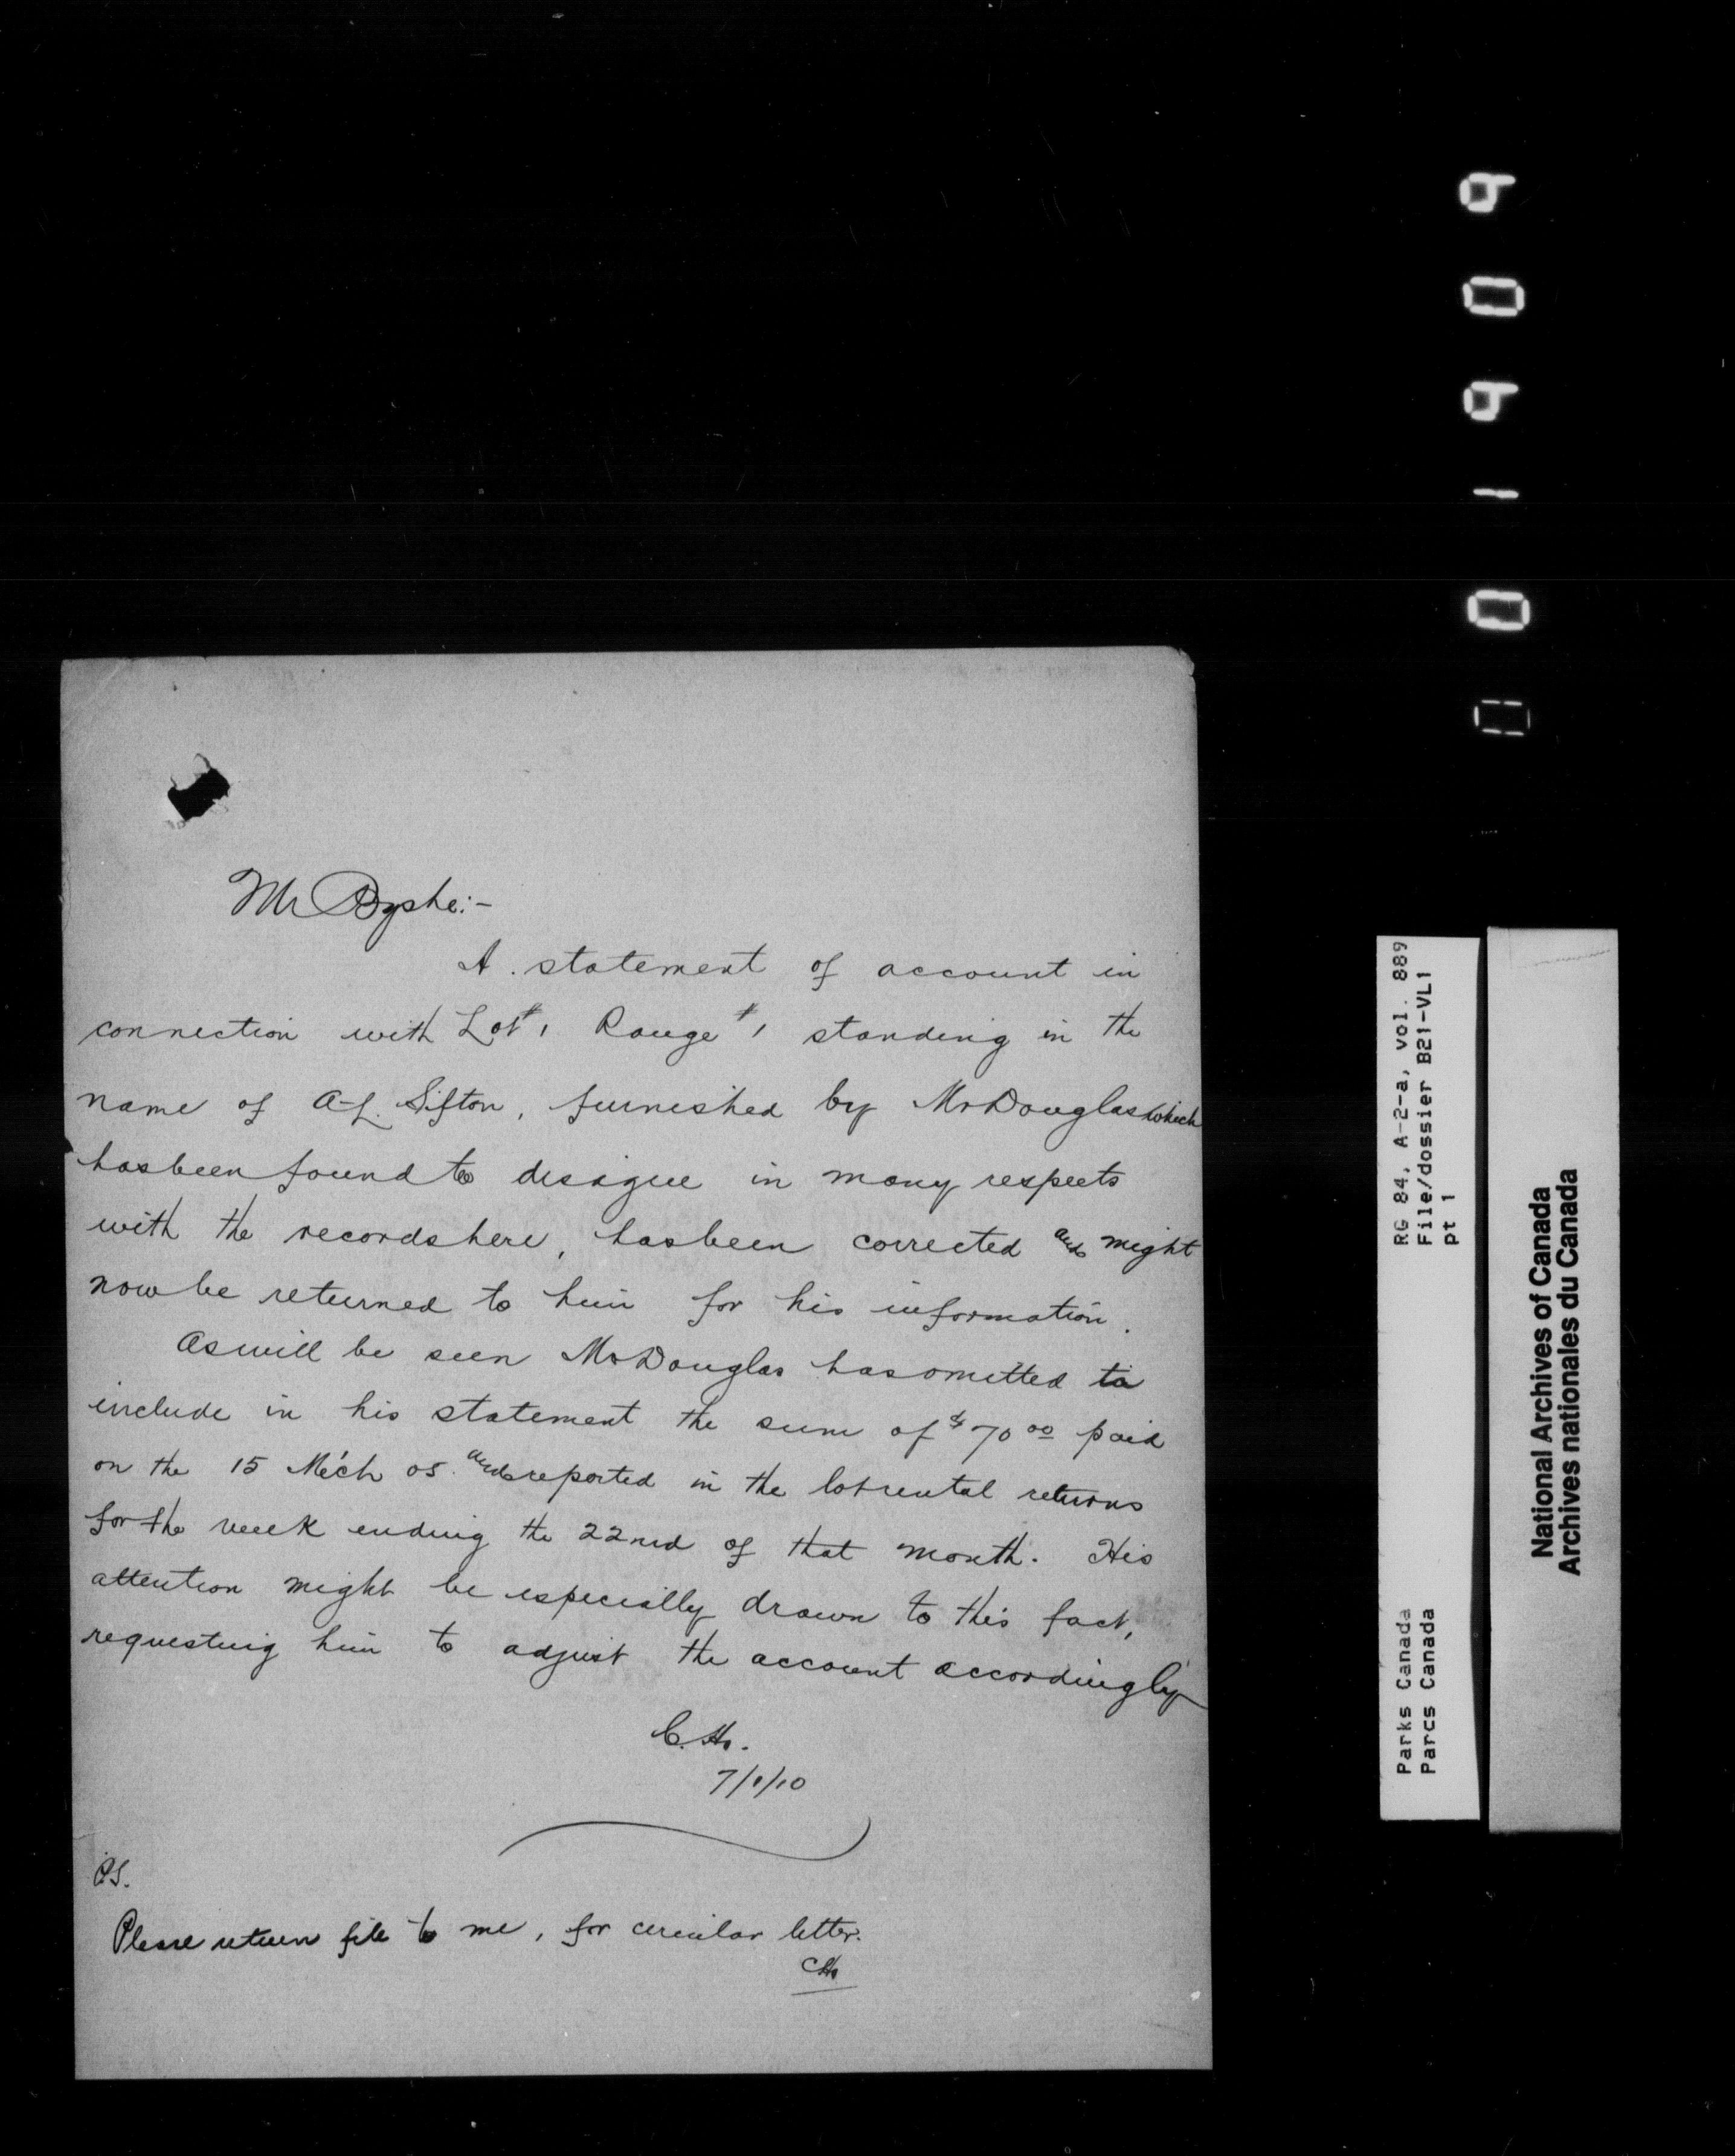 Mr Byshe:-
A. statement of account in
connection with Lot #1 Range #1 standing in the
name of A.L. Sifton, furnished by Mr Douglas which
has been found to disagree in many respects
with the records here, has been corrected and might
now be returned to him for his information.
As will be seen Mr Douglas has omitted to
include in his statement the sum of $70 00 paid
on the 15 Mch 05. and reported in the lot rental returns
for the week ending the 22nd of that month. His
attention might be especially drawn to this fact,
requesting him to adjust the account accordingly
C.H.
7/1/10
P.S.
Please return file to me, for circular letter.
CH
RG 84, A-2-a, vol. 889
File/dossier B21-VL1
pt 1
Parks Canada
Parcs Canada
National Archives of Canada
Archives nationales du Canada